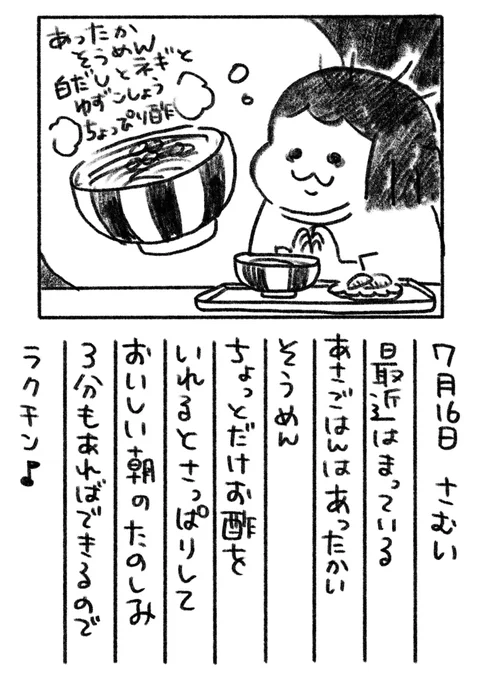 あったか
そうめん
白だしとネギと
ゆずこしょう
ちょっぴり酢
7月16日 さむい
最近はまっている
あさごはんはあったかい
そうめん
ちょっとだけお酢を
いれるとさっぱりして
おいしい朝のたのしみ
3分もあればできるので
ラクチン♪